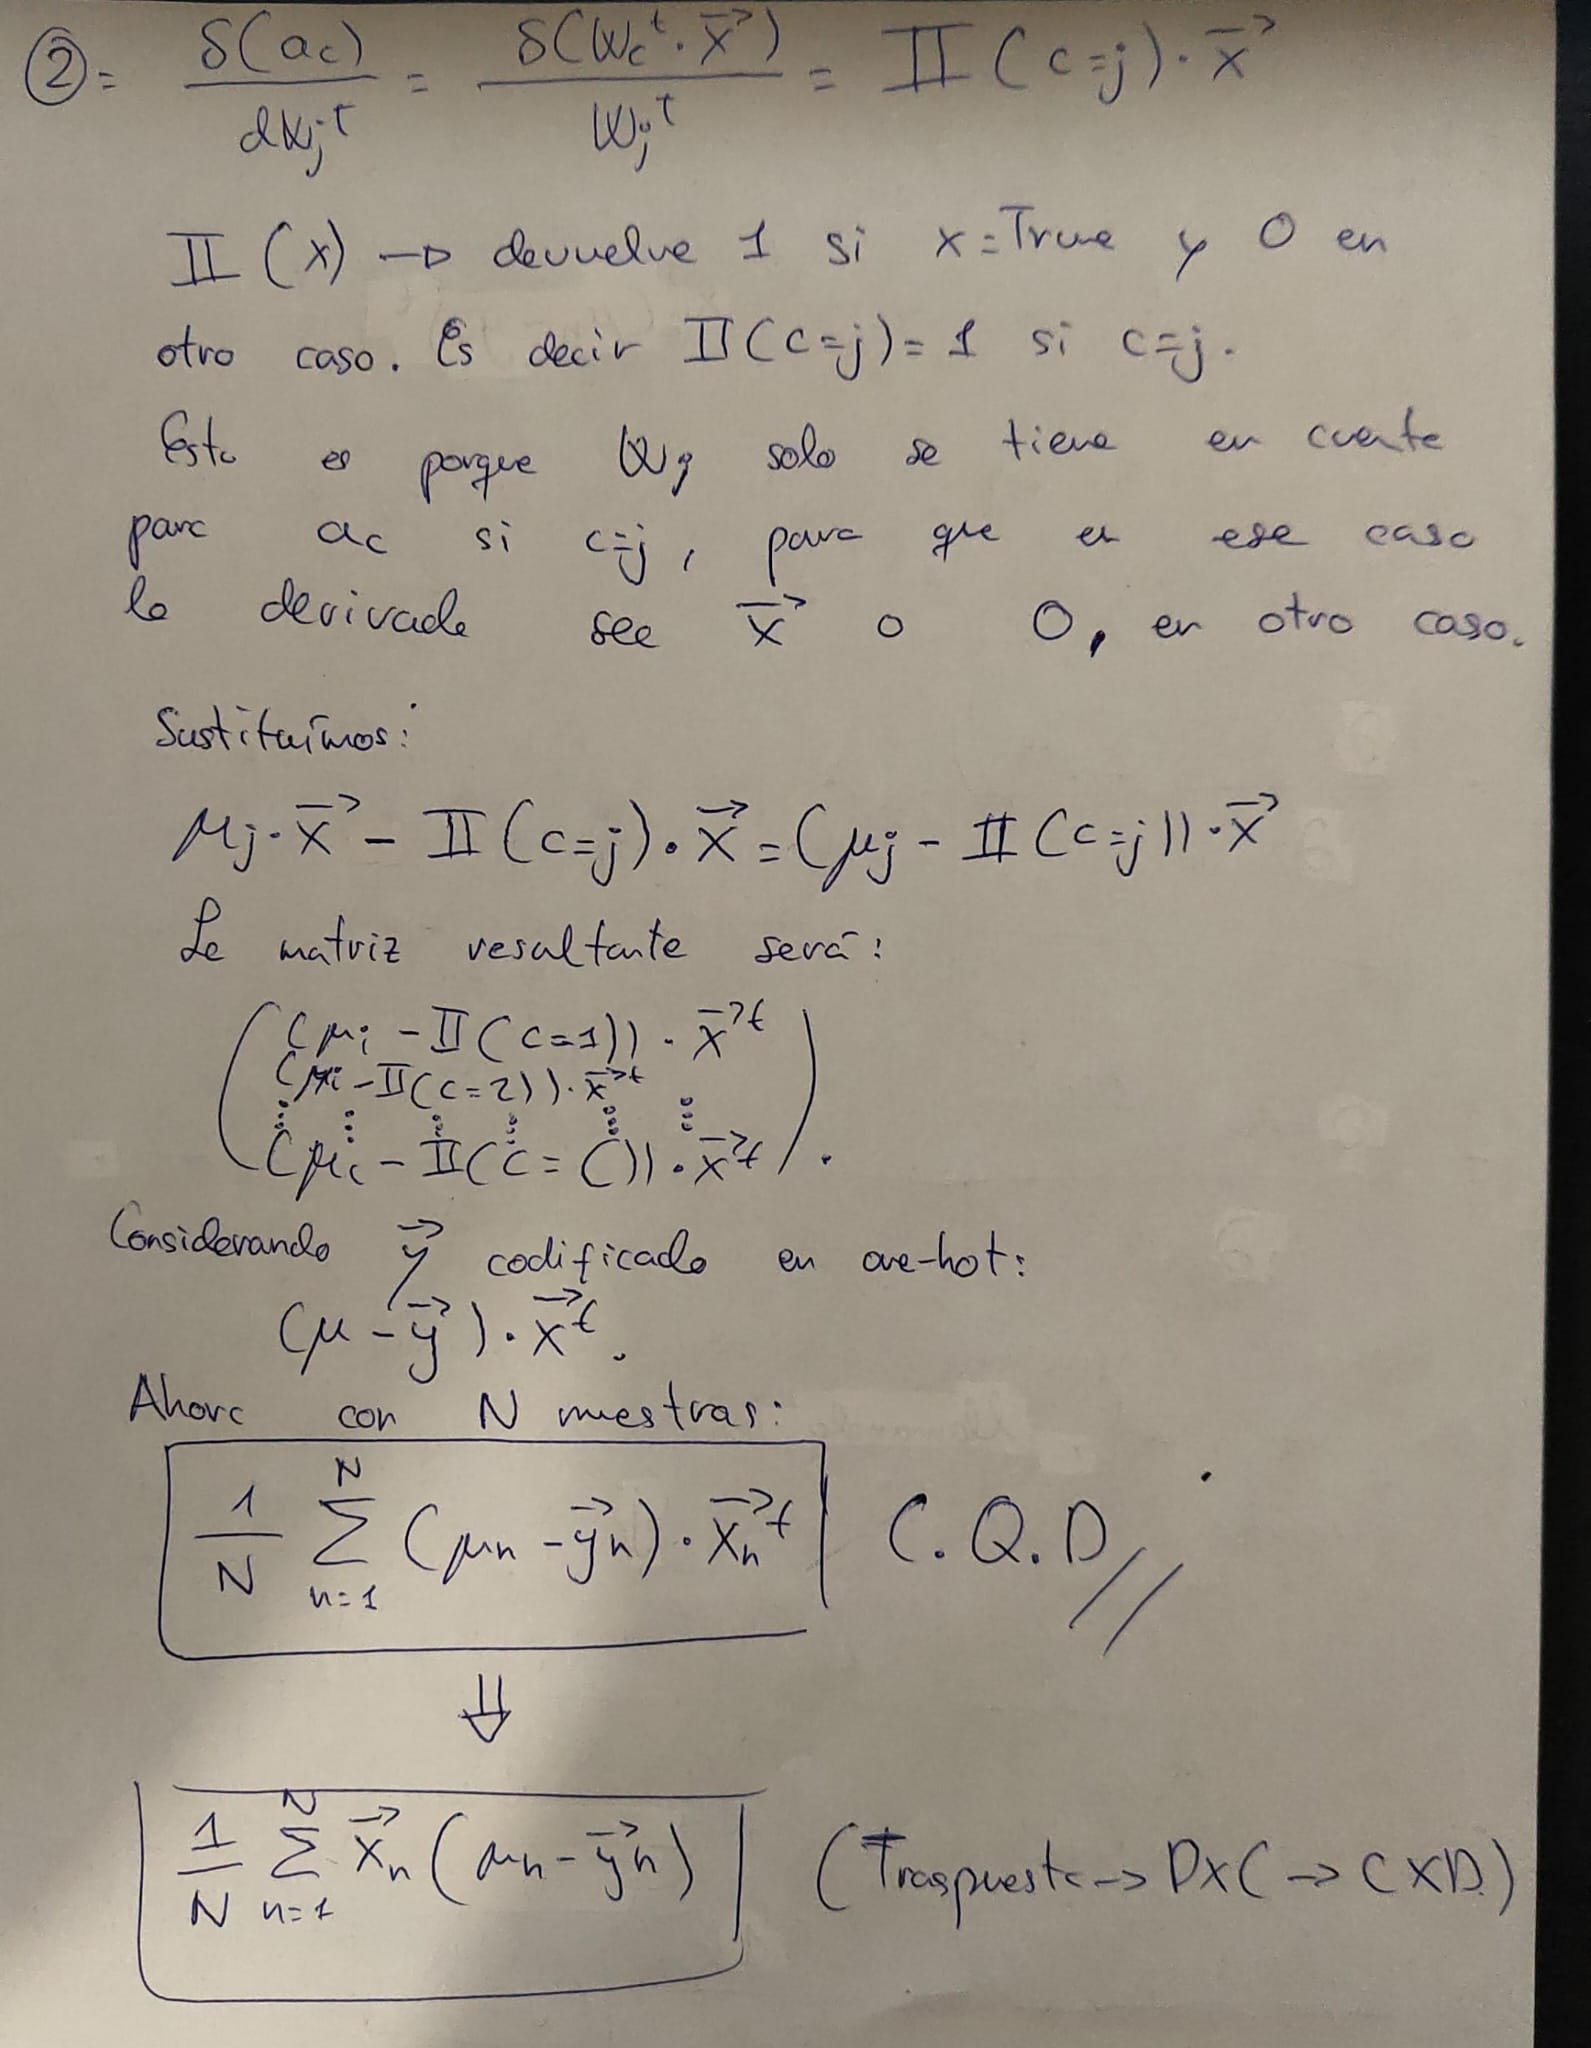 ② = δ(ac) / dWj^t = δ(Wc^t · x⃗) / Wj^t = II (c=j) · x⃗
II (x) → devuelve 1 si x=True y 0 en
otro caso. Es decir II (c=j) = 1 si c=j.
Esto es porque Wj solo se tiene en cuenta
para ac si c=j, para que en ese caso
la derivada sea x⃗ o 0, en otro caso.
Sustituímos:
μj · x⃗ - II (c=j) · x⃗ = (μj - II (c=j)) · x⃗
La matriz resultante será:
(μi - II (c=1)) · x⃗^t
(μi - II (c=2)) · x⃗^t
(μc - II (c=C)) · x⃗^t.
Considerando y⃗ codificado en one-hot:
(μ - y⃗) · x⃗^t.
Ahora con N muestras:
1/N Σ_{n=1}^{N} (μn - y⃗n) · x⃗n^t C.Q.D//
⇓
1/N Σ_{n=1}^{N} x⃗n (μn - y⃗n) (Traspuesta → DXC → CXD)